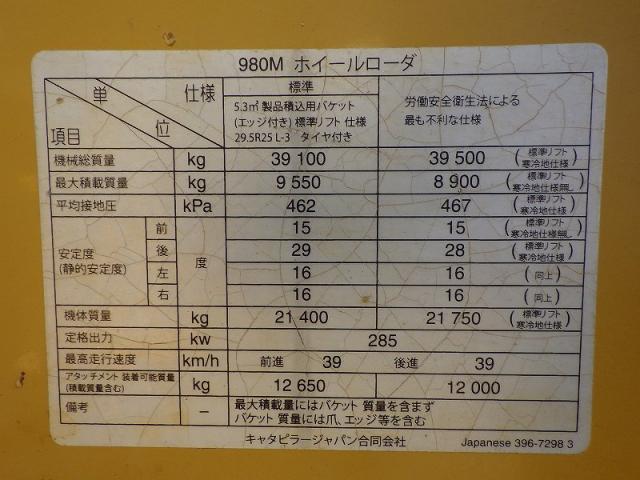 980M ホイールローダ
単 位 仕様 項目
標準
5.3㎥ 製品積込用バケット
(エッジ付き) 標準リフト 仕様
29.5R25 L-3 タイヤ付き
労働安全衛生法による
最も不利な仕様
機械総質量 kg 39 100 39 500 (標準リフト 寒冷地仕様)
最大積載質量 kg 9 550 8 900 (標準リフト 寒冷地仕様無し)
平均接地圧 kPa 462 467 (標準リフト 寒冷地仕様)
安定度 (静的安定度) 度
前 15 15 (標準リフト 寒冷地仕様無し)
後 29 28 (標準リフト 寒冷地仕様)
左 16 16 (同上)
右 16 16 (同上)
機体質量 kg 21 400 21 750 (標準リフト 寒冷地仕様)
定格出力 kw 285
最高走行速度 km/h 前進 39 後進 39
アタッチメント 装着可能質量
(積載質量含む) kg 12 650 12 000
備考 – 最大積載量にはバケット 質量を含まず
バケット 質量には爪、エッジ等を含む
キャタピラージャパン合同会社 Japanese 396-7298 3